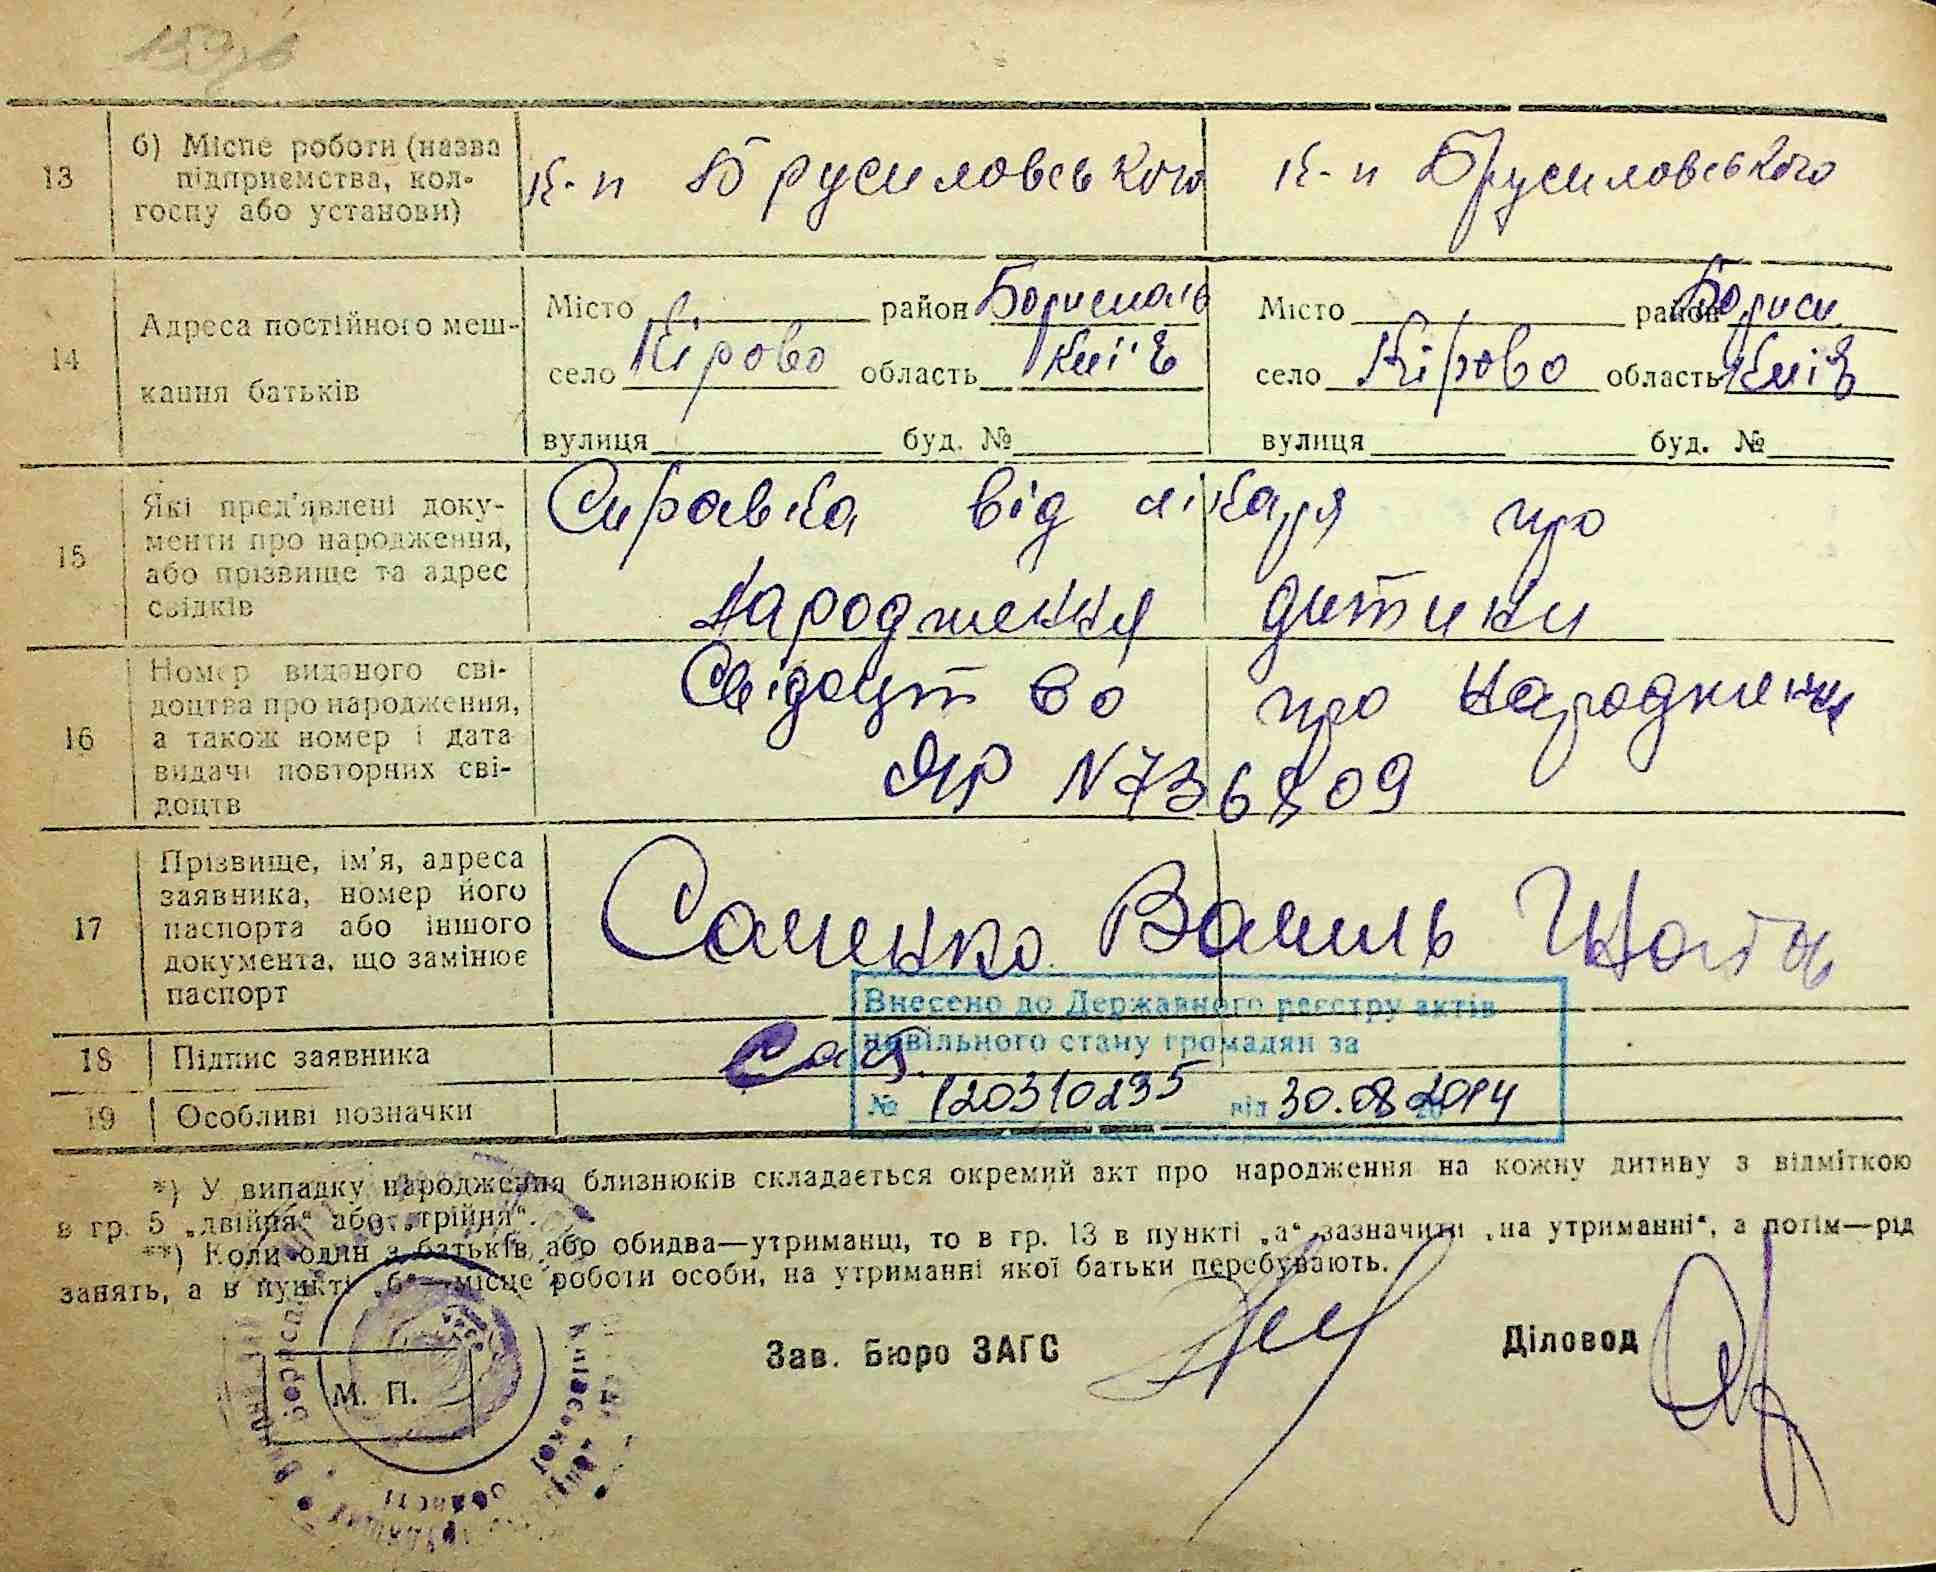 13
б) Місце роботи (назва
підприємства, кол-
госпу або установи)
к-п Брусиловського
к-п Брусиловського
14
Адреса постійного меш-
кання батьків
Місто район Бориспольс
село Кірово область Київ
вулиця буд. №
Місто район Борисп
село Кірово область Київ
вулиця буд. №
15
Які пред'явлені доку-
менти про народження,
або прізвище та адрес
свідків
Справка від лікаря про
народження дитини
16
Номер виданого сві-
доцтва про народження,
а також номер і дата
видачі повторних сві-
доцтв
Свідоцтво про народження
ЯР N 736809
17
Прізвище, ім'я, адреса
заявника, номер його
паспорта або іншого
документа, що замінює
паспорт
Саченко Василь
Внесено до Державного реєстру актів
цивільного стану громадян за
№ 120310235 від 30.08.2014
18
Підпис заявника
19
Особливі позначки
*) У випадку народження близнюків складається окремий акт про народження на кожну дитину з відміткою
в гр. 5 „двійня“ або „трійня“.
**) Коли один з батьків або обидва—утриманці, то в гр. 13 в пункті „а“ зазначити „на утриманні“, а потім—рід
занять, а в пункті „б“—місце роботи особи, на утриманні якої батьки перебувають.
М. П.
Київської
області
Зав. Бюро ЗАГС
Діловод